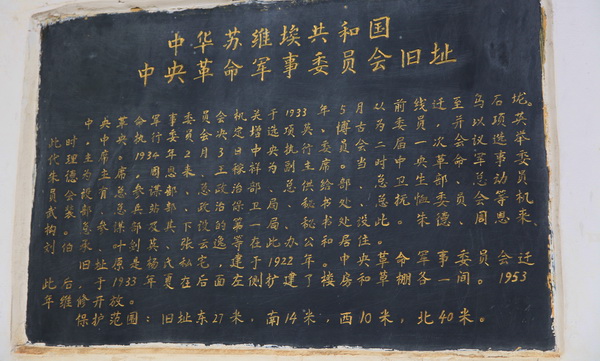 中华苏维埃共和国
中央革命军事委员会旧址
中央革命军事委员会机关于1933年5月以前线迁至乌石垅。
此时,中央执行委员会决定增选项英、博古为委员,并以项英
代理主席。1934年2月3日中央执委会
朱德为主席。周恩来、王稼祥为副主席。中央革命军事委
员会设有总参谋部、总政治部、总供给部、总卫生部、总动员
武装部、兵站及政治保卫局、秘书处、抚恤委员会等机
构。朱德、周恩来、
刘伯承、叶剑英、张云逸等在此办公和居住。
旧址原是杨氏私宅,建于1922年。中央革命军事委员会迁
此后,于1933年夏在后面左侧扩建了楼房和草棚各一间。1953
年维修开放。
保护范围:旧址东27米,南14米,西10米,北40米。